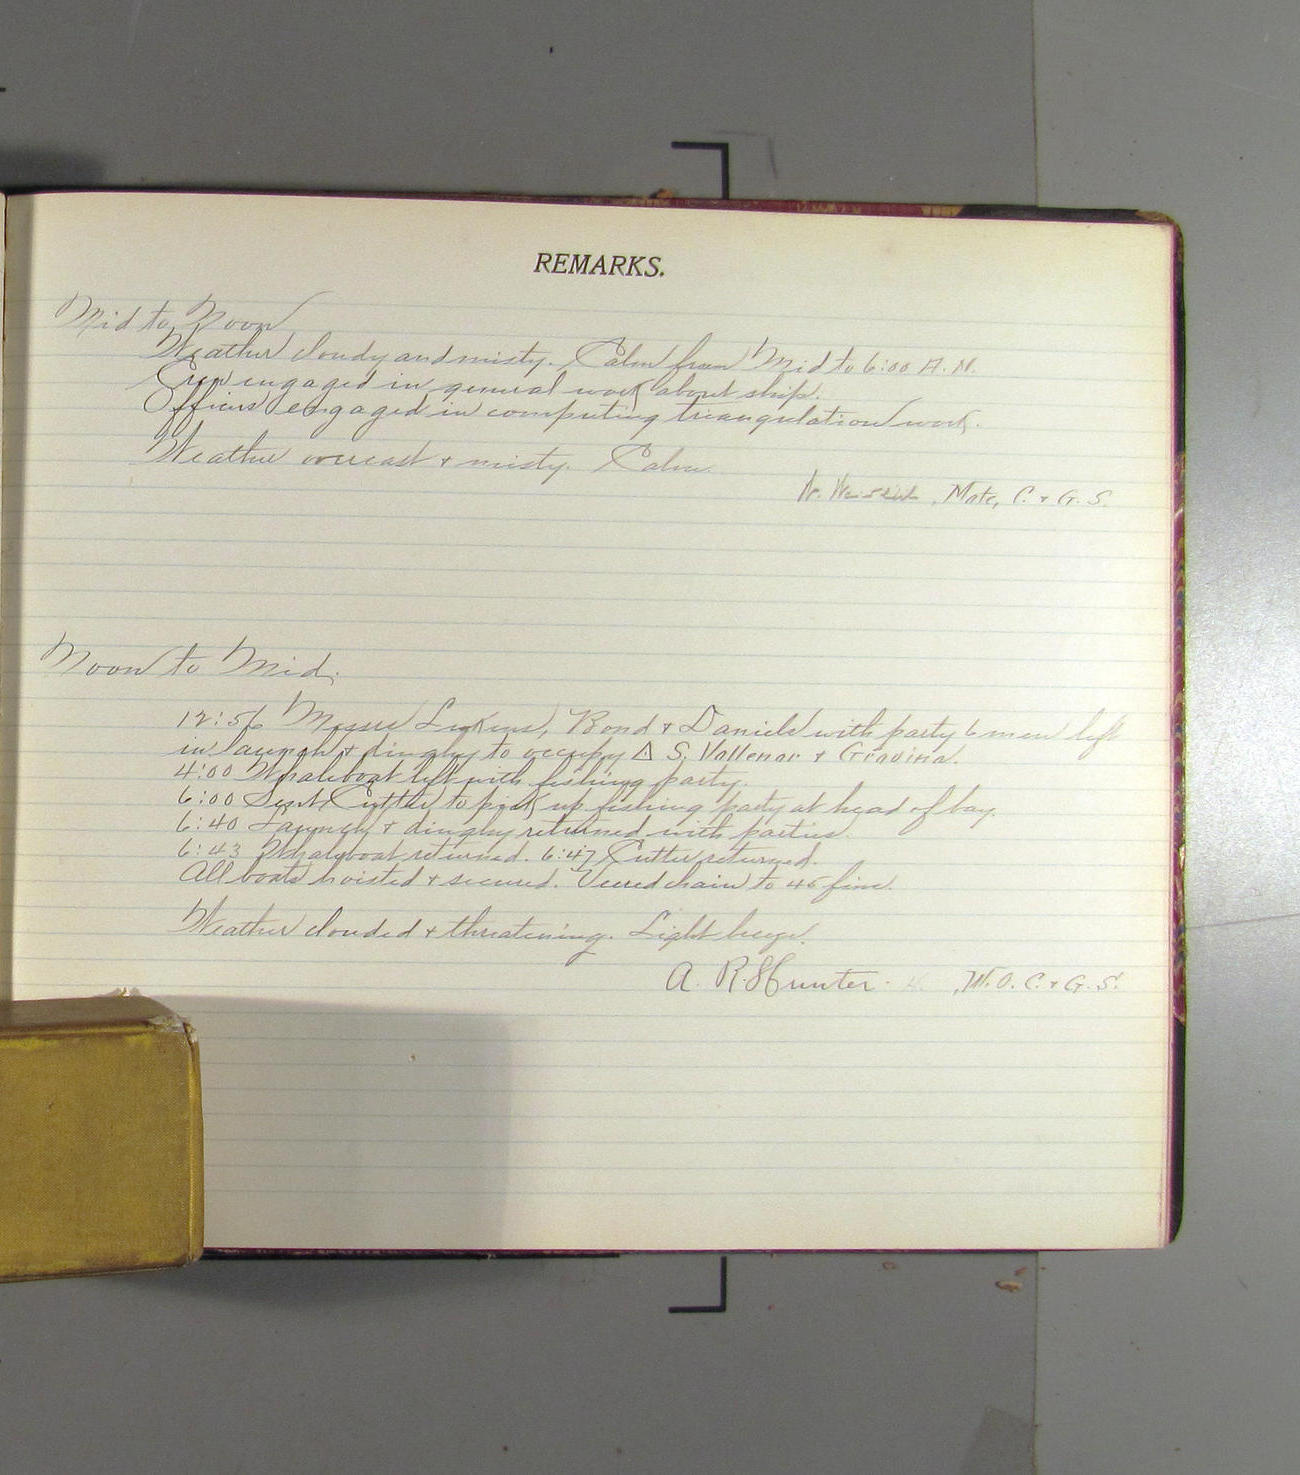 REMARKS.
Mid to Noon
Weather cloudy and misty. Calm from Mid to 6:00 A.M.
Crew engaged in general work about ship.
Officers engaged in computing triangulation work.
Weather overcast + misty. Calm.
W. , Mate, C. + G. S.
Noon to Mid.
12:56 Messrs Lukens, Bond + Daniels with party 6 men left
in launch + dinghy to occupy Δ S. Vallenar + Gravina.
4:00 Whaleboat left with fishing party.
6:00 Sent Cutter to pick up fishing party at head of bay.
6:40 Launch + dinghy returned with parties.
6:43 Whaleboat returned. 6:47 Cutter returned.
All boats hoisted + secured. Veered chain to 45 fms.
Weather clouded + threatening. Light breeze.
A. R. Hunter. , W. O. C. + G. S.